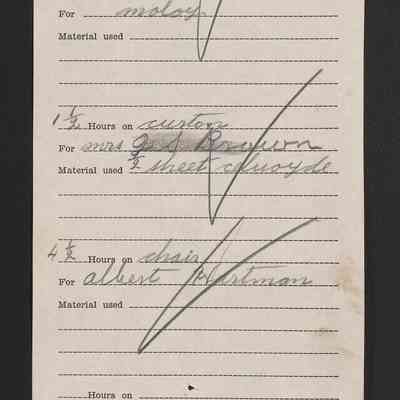 For moloy
Material used
1 1/2 Hours on curton
For mrs G. S. Brown
Material used 1/2 sheet
4 1/2 Hours on chair
For albert Hartman
Material used
Hours on